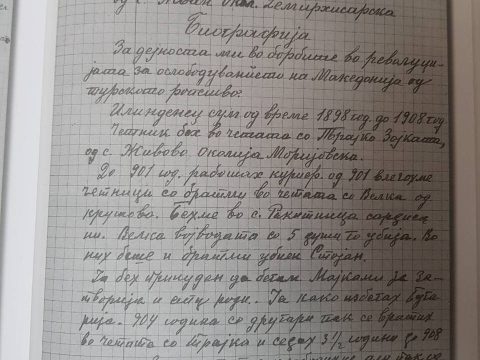 од с. Жван окол. Демирхисарска
Биографија
За дејноста ми во борбите во револуци-
јата за ослободуванието на Македонија од
турското ропство:
Илинденец сум од време 1898 год. до 1908 год
Четник бех во четата со Трајко Зојката,
од с. Живово Околија Моријовска.
До 901 год. работах куриер. од 901 влегохме
четници со братми во четата со Велка од
крушово. Бехме во с. Ракитница сардиса
ни. Велка војводата со 5 души го убија. Во
них беше и братми убиен Стојан.
Ја бех принуден да бегам. Мајками ја за-
творија и сиџу роди. Ја како избегах Буга
рија. 904 година со другари пак се вратих
во четата со Трајка и седах 3 1/2 години до 908